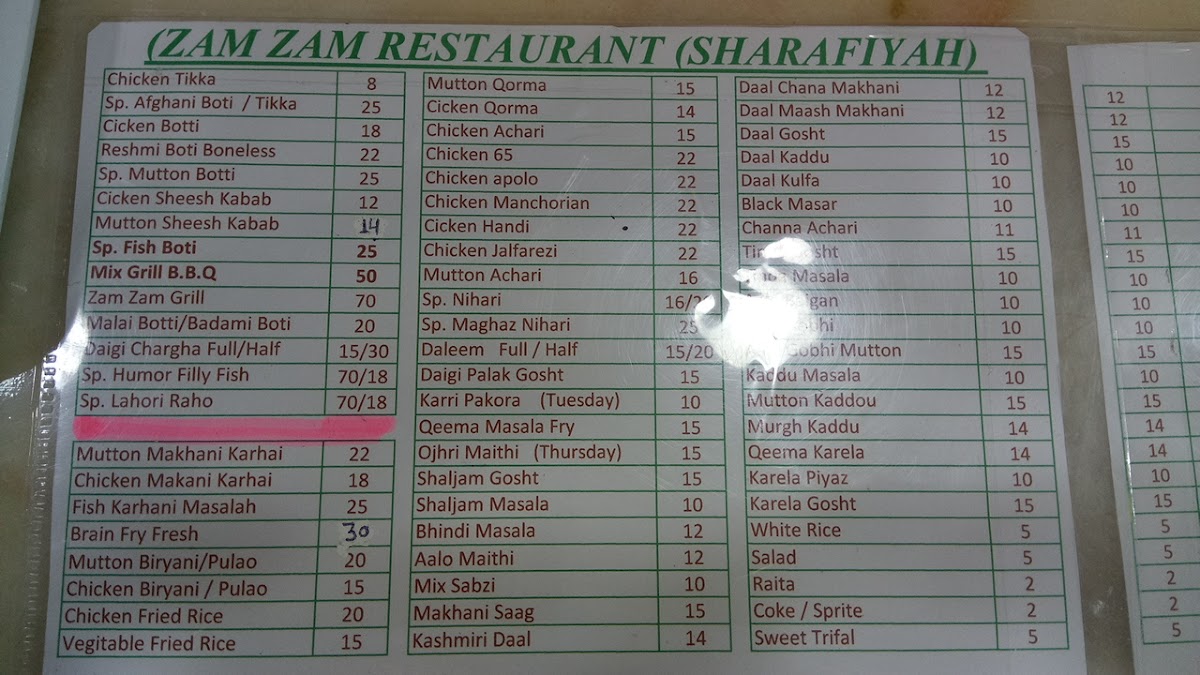 (ZAM ZAM RESTAURANT (SHARAFIYAH)
Chicken Tikka 8
Sp. Afghani Boti / Tikka 25
Cicken Botti 18
Reshmi Boti Boneless 22
Sp. Mutton Botti 25
Cicken Sheesh Kabab 12
Mutton Sheesh Kabab 14
Sp. Fish Boti 25
Mix Grill B.B.Q 50
Zam Zam Grill 70
Malai Botti/Badami Boti 20
Daigi Chargha Full/Half 15/30
Sp. Humor Filly Fish 70/18
Sp. Lahori Raho 70/18
Mutton Makhani Karhai 22
Chicken Makani Karhai 18
Fish Karhani Masalah 25
Brain Fry Fresh 30
Mutton Biryani/Pulao 20
Chicken Biryani / Pulao 15
Chicken Fried Rice 20
Vegitable Fried Rice 15
Mutton Qorma 15
Cicken Qorma 14
Chicken Achari 15
Chicken 65 22
Chicken apolo 22
Chicken Manchorian 22
Cicken Handi 22
Chicken Jalfarezi 22
Mutton Achari 16
Sp. Nihari 16/
Sp. Maghaz Nihari 25
Daleem Full / Half 15/20
Daigi Palak Gosht 15
Karri Pakora (Tuesday) 10
Qeema Masala Fry 15
Ojhri Maithi (Thursday) 15
Shaljam Gosht 15
Shaljam Masala 10
Bhindi Masala 12
Aalo Maithi 12
Mix Sabzi 10
Makhani Saag 15
Kashmiri Daal 14
Daal Chana Makhani 12
Daal Maash Makhani 12
Daal Gosht 15
Daal Kaddu 10
Daal Kulfa 10
Black Masar 10
Channa Achari 11
15
Masala 10
10
10
Gobhi Mutton 15
Kaddu Masala 10
Mutton Kaddou 15
Murgh Kaddu 14
Qeema Karela 14
Karela Piyaz 10
Karela Gosht 15
White Rice 5
Salad 5
Raita 2
Coke / Sprite 2
Sweet Trifal 5
12
12
15
10
10
10
11
15
10
10
10
15
10
15
14
14
10
15
5
5
2
2
5